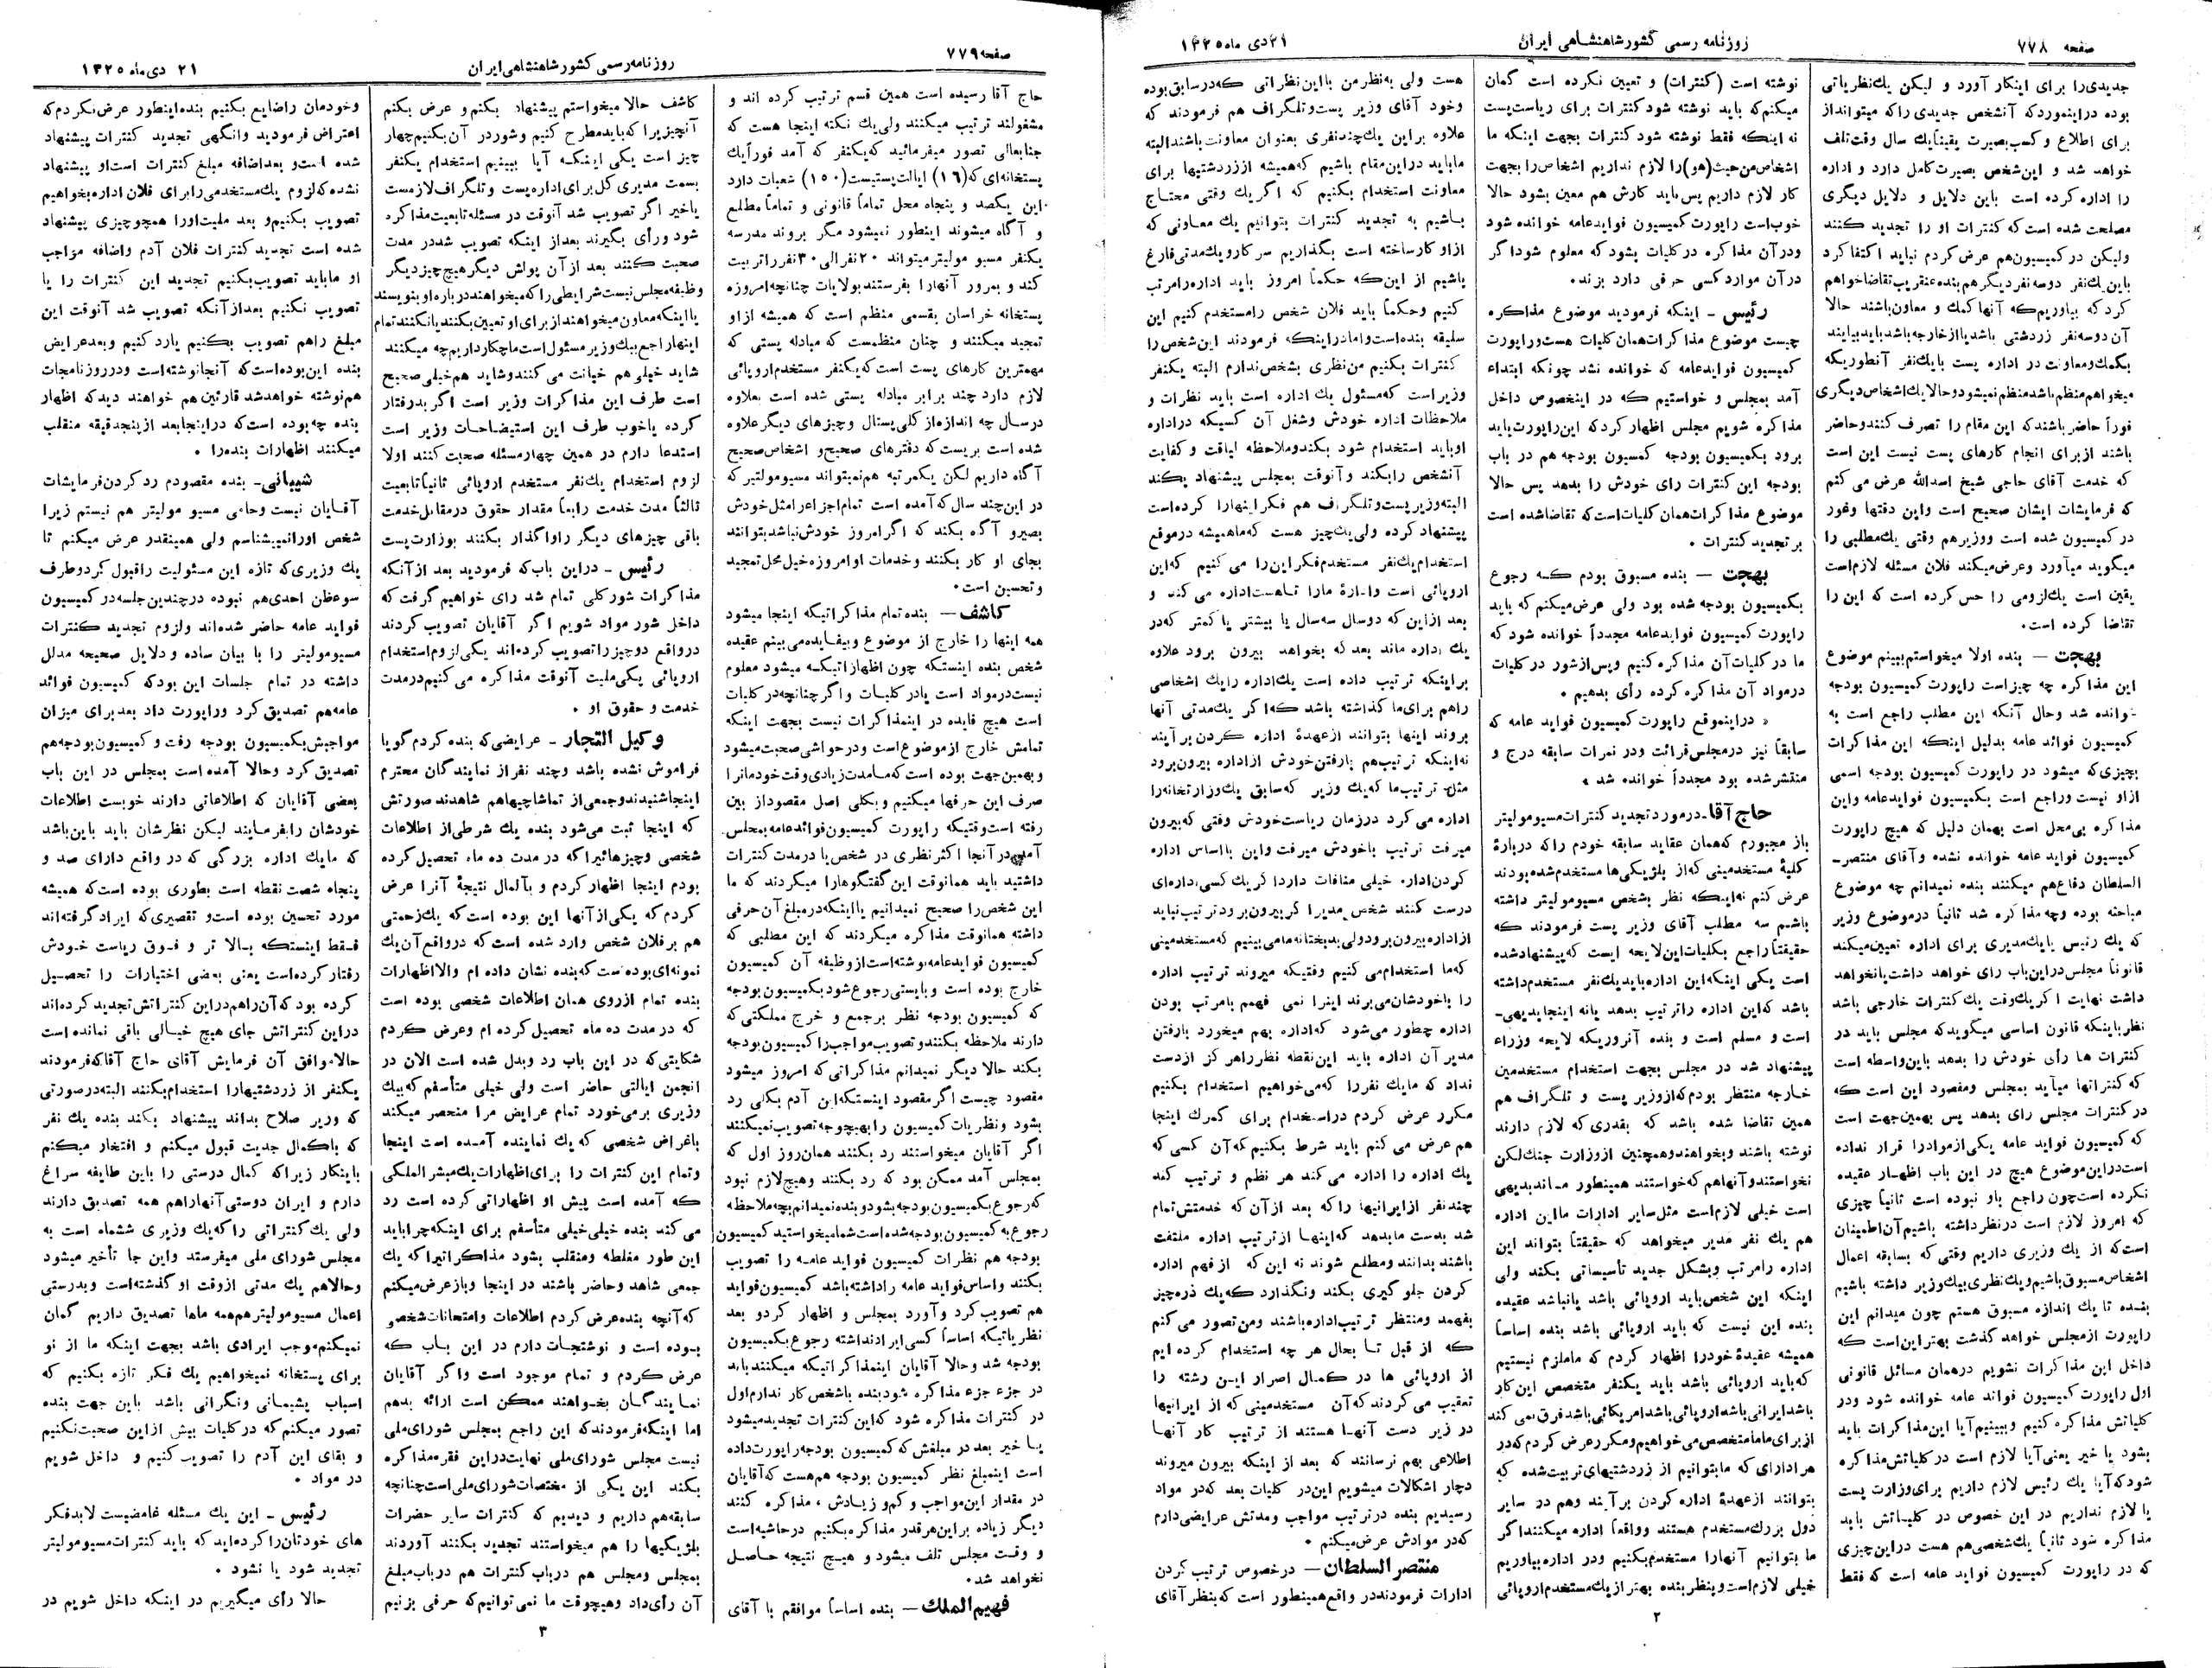 صفحه ۷۷۸
روزنامه رسمی کشور شاهنشاهی ایران
۲۱ دی ماه ۱۳۲۵
جدیدی را برای اینکار آورد و لیکن یك نظریاتی
بوده در اینمورد که آنشخص جدیدی را که میتوانداز
برای اطلاع و کسب بصیرت یقیناً یك سال وقت تلف
خواهد شد و این شخص بصیرت کامل دارد و اداره
را اداره کرده است باین دلایل و دلایل دیگری
مصلحت شده است که کنترات او را تجدید کنند
ولیکن در کمیسیون هم عرض کردم نباید اکتفا کرد
باین یك نفر دوسه نفر دیگر هم بنده عنقریب تقاضا خواهم
کرد که بیاوریم که آنها کمك و معاون باشند حالا
آن دوسه نفر زردشتی باشد یا از خارجه باشد باید بیایند
بکمك و معاونت در اداره پست با یك نفر آنطوریکه
میخواهم منظم باشد منظم نمیشود و حالا یك اشخاص دیگری
فوراً حاضر باشند که این مقام را تصرف کنند و حاضر
باشند از برای انجام کارهای پست نیست این است
که خدمت آقای حاجی شیخ اسدالله عرض می کنم
که فرمایشات ایشان صحیح است و این دقتها و غور
در کمیسیون شده است و وزیر هم وقتی یك مطلبی را
میگوید میآورد و عرض میکند فلان مسئله لازم است
یقین است یك لزومی را حس کرده است که این را
تقاضا کرده است.
بهجت — بنده اولا میخواستم ببینم موضوع
این مذاکره چه چیز است راپورت کمیسیون بودجه
خوانده شد و حال آنکه این مطلب راجع است به
کمیسیون فوائد عامه بدلیل اینکه این مذاکرات
بچیزی که میشود در راپورت کمیسیون بودجه اسمی
از او نیست و راجع است بکمیسیون فواید عامه و این
مذاکره بی محل است بهمان دلیل که هیچ راپورت
کمیسیون فواید عامه خوانده نشده و آقای منتصر-
السلطان دفاع هم میکنند بنده نمیدانم چه موضوع
مباحثه بوده و چه مذاکره شد ثانیاً در موضوع وزیر
که یك رئیس یا یك مدیری برای اداره تعیین میکند
قانوناً مجلس در این باب رای خواهد داشت یا نخواهد
داشت نهایت اگر یك وقت یك کنترات خارجی باشد
نظر باینکه قانون اساسی میگوید که مجلس باید در
کنترات ها رأی خودش را بدهد باین واسطه است
که کنتراتها میآید بمجلس و مقصود این است که
در کنترات مجلس رای بدهد پس بهمین جهت است
که کمیسیون فواید عامه یکی از مواد را قرار نداده
است در این موضوع هیچ در این باب اظهار عقیده
نکرده است چون راجع باو نبوده است ثانیاً چیزی
که امروز لازم است در نظر داشته باشیم آن اطمینان
است که از یك وزیری داریم وقتی که بسابقه اعمال
اشخاص مسبوق باشیم و یك نظری بیك وزیر داشته باشیم
بنده تا یك اندازه مسبوق هستم چون میدانم این
راپورت از مجلس خواهد گذشت بهتر این است که
داخل این مذاکرات نشویم در همان مسائل قانونی
اول راپورت کمیسیون فوائد عامه خوانده شود و در
کلیاتش مذاکره کنیم و ببینیم آیا این مذاکرات باید
بشود یا خیر یعنی آیا لازم است در کلیاتش مذاکره
شود که آیا یك رئیس لازم داریم برای وزارت پست
یا لازم نداریم در این خصوص در کلیاتش باید
مذاکره شود ثانیاً یك شخصی هم هست در این چیزی
که در راپورت کمیسیون فواید عامه است که فقط
نوشته است (کنترات) و تعیین نکرده است گمان
میکنم که باید نوشته شود کنترات برای ریاست پست
نه اینکه فقط نوشته شود کنترات بجهت اینکه ما
اشخاص من حیث (هو) را لازم نداریم اشخاص را بجهت
کار لازم داریم پس باید کارش هم معین بشود حالا
خوب است راپورت کمیسیون فواید عامه خوانده شود
و در آن مذاکره در کلیات بشود که معلوم شود اگر
در آن موارد کسی حرفی دارد بزند.
رئیس - اینکه فرمودید موضوع مذاکره
چیست موضوع مذاکرات همان کلیات هست و راپورت
کمیسیون فواید عامه که خوانده نشد چونکه ابتداء
آمد بمجلس و خواستیم که در اینخصوص داخل
مذاکره شویم مجلس اظهار کرد که این راپورت باید
برود بکمیسیون بودجه کمسیون بودجه هم در باب
بودجه این کنترات رای خودش را بدهد پس حالا
موضوع مذاکرات همان کلیات است که تقاضا شده است
بر تجدید کنترات .
بهجت — بنده مسبوق بودم که رجوع
بکمیسیون بودجه شده بود ولی عرض میکنم که باید
راپورت کمیسیون فواید عامه مجدداً خوانده شود که
ما در کلیات آن مذاکره کنیم و پس از شور در کلیات
در مواد آن مذاکره کرده رأی بدهیم .
« در اینموقع راپورت کمیسیون فواید عامه که
سابقاً نیز در مجلس قرائت و در نمرات سابقه درج و
منتشر شده بود مجدداً خوانده شد »
حاج آقا - در مورد تجدید کنترات مسیو مولیتر
باز مجبورم که همان عقاید سابقه خودم را که درباره
کلیهٔ مستخدمینی که از بلژیکی ها مستخدم شده بودند
عرض کنم نه اینکه نظر بشخص مسیو مولیتر داشته
باشم سه مطلب آقای وزیر پست فرمودند که
حقیقتاً راجع بکلیات این لایحه ایست که پیشنهاد شده
است یکی اینکه این اداره باید یك نفر مستخدم داشته
باشد که این اداره را ترتیب بدهد یا نه اینجا بدیهی-
است و مسلم است و بنده آنروزیکه لایحه وزراء
پیشنهاد شد در مجلس بجهت استخدام مستخدمین
خارجه منتظر بودم که از وزیر پست و تلگراف هم
همین تقاضا شده باشد که بقدری که لازم دارند
نوشته باشند و بخواهند و همچنین از وزارت جنك لکن
نخواستند و آنها هم که خواستند همینطور ماند بدیهی
است خیلی لازم است مثل سایر ادارات ما این اداره
هم یك نفر مدیر میخواهد که حقیقتاً بتواند این
اداره را مرتب و بشکل جدید تأسیساتی بکند ولی
اینکه این شخص باید اروپائی باشد یا نباشد عقیده
بنده این نیست که باید اروپائی باشد بنده اساساً
همیشه عقیدهٔ خود را اظهار کردم که ما ملزم نیستیم
که باید اروپائی باشد باید یکنفر متخصص این کار
باشد ایرانی باشد اروپائی باشد امریکائی باشد فرق نمی کند
از برای ما ما متخصص می خواهیم و مکرر عرض کردم که در
هر اداره ای که ما بتوانیم از زردشتیهای تربیت شده که
بتوانند از عهدهٔ اداره کردن برآیند و هم در سایر
دول بزرك مستخدم هستند و واقعاً اداره میکنند اگر
ما بتوانیم آنها را مستخدم بکنیم و در اداره بیاوریم
خیلی لازم است و بنظر بنده بهتر از یك مستخدم اروپائی
هست ولی به نظر من با این نظرانی که در سابق بوده
و خود آقای وزیر پست و تلگراف هم فرمودند که
علاوه بر این یك چند نفری بعنوان معاونت باشند البته
ما باید در این مقام باشیم که همیشه از زردشتیها برای
معاونت استخدام بکنیم که اگر یك وقتی محتاج
باشیم به تجدید کنترات بتوانیم یك معاونی که
از او کار ساخته است بگذاریم سر کار و یك مدتی فارغ
باشیم از این که حکماً امروز باید اداره را مرتب
کنیم و حکماً باید فلان شخص را مستخدم کنیم این
سلیقه بنده است و اما در اینکه فرمودند این شخص را
کنترات بکنیم من نظری بشخص ندارم البته یکنفر
وزیر است که مسئول یك اداره است باید نظرات و
ملاحظات اداره خودش و شغل آن کسیکه در اداره
او باید استخدام شود بکند و ملاحظه لیاقت و کفایت
آنشخص را بکند و آنوقت بمجلس پیشنهاد بکند
البته وزیر پست و تلگراف هم فکر اینها را کرده است
پیشنهاد کرده ولی یك چیز هست که ما همیشه در موقع
استخدام یك نفر مستخدم فکر این را می کنیم که این
اروپائی است و ادارهٔ ما را تا هست اداره می کند و
بعد از این که دو سال سه سال یا بیشتر یا کمتر که در
یك اداره ماند بعد که بخواهد بیرون برود علاوه
بر اینکه ترتیب داده است یك اداره را یك اشخاصی
را هم برای ما گذاشته باشد که اگر یك مدتی آنها
بروند اینها بتوانند از عهدهٔ اداره کردن برآیند
نه اینکه ترتیب هم با رفتن خودش از اداره بیرون برود
مثل ترتیب ما که یك وزیر که سابق یك وزارتخانه را
اداره می کرد در زمان ریاست خودش وقتی که بیرون
میرفت ترتیب با خودش میرفت و این با اساس اداره
کردن اداره خیلی منافات دارد اگر یك کسی اداره ای
درست کند شخص مدیر اگر بیرون برود ترتیب نباید
از اداره بیرون برود ولی بدبختانه ما می بینیم که مستخدمینی
که ما استخدام می کنیم وقتیکه میروند ترتیب اداره
را با خودشان می برند اینرا نمی فهمم با مرتب بودن
اداره چطور می شود که اداره بهم میخورد با رفتن
مدیر آن اداره باید این نقطه نظر را هرگز از دست
نداد که ما یك نفر را که می خواهیم استخدام بکنیم
مکرر عرض کردم در استخدام برای گمرك اینجا
هم عرض می کنم باید شرط بکنیم که آن کسی که
یك اداره را اداره می کند هر نظم و ترتیب کند
چند نفر از ایرانیها را که بعد از آن که خدمتش تمام
شد بدست ما بدهد که اینها از ترتیب اداره ملتفت
باشند بدانند و مطلع شوند نه این که از فهم اداره
کردن جلوگیری بکند و نگذارد که یك ذره چیز
بفهمد و منتظر ترتیب اداره باشند و من تصور می کنم
که از قبل تا بحال هر چه استخدام کرده ایم
از اروپائی ها در کمال اصرار این رشته را
تعقیب می کردند که آن مستخدمینی که از ایرانیها
در زیر دست آنها هستند از ترتیب کار آنها
اطلاعی بهم نرسانند که بعد از اینکه بیرون میروند
دچار اشکالات میشویم این در کلیات بعد که در مواد
رسیدیم بنده در ترتیب مواجب و مدتش عرایضی دارم
که در موادش عرض میکنم .
منتصر السلطان — در خصوص ترتیب کردن
ادارات فرمودند در واقع همینطور است که بنظر آقای
۲
صفحه ۷۷۹
روزنامه رسمی کشور شاهنشاهی ایران
۲۱ دی ماه ۱۳۲۵
حاج آقا رسیده است همین قسم ترتیب کرده اند و
مشغولند ترتیب میکنند ولی یك نکته اینجا هست که
جنابعالی تصور میفرمائید که یکنفر که آمد فوراً یك
پستخانه ای که (۱۶) ایالت پستیست (۱۵۰) شعبات دارد
این یکصد و پنجاه محل تماماً قانونی و تماماً مطلع
و آگاه میشوند اینطور نمیشود مگر بروند مدرسه
یکنفر مسیو مولیتر میتواند ۲۰ نفر الی ۳۰ نفر را تربیت
کند و بمرور آنها را بفرستند بولایات چنانچه امروزه
پستخانه خراسان بقسمی منظم است که همیشه از او
تمجید میکنند و چنان منظمست که مبادله پستی که
مهمترین کارهای پست است که یکنفر مستخدم اروپائی
لازم دارد چند برابر مبادله پستی شده است بعلاوه
در سال چه اندازه از کلی پستال و چیزهای دیگر علاوه
شده است بر پست که دفترهای صحیح و اشخاص صحیح
آگاه داریم لکن یکمرتبه هم نمیتواند مسیو مولتیر که
در این چند سال که آمده است تمام اجزاء را مثل خودش
بصیر و آگاه بکند که اگر امروز خودش نباشد بتوانند
بجای او کار بکنند و خدمات او امروزه خیل محل تمجید
و تحسین است.
کاشف — بنده تمام مذاکراتیکه اینجا میشود
همه اینها را خارج از موضوع و بیفایده می بینم عقیده
شخص بنده اینستکه چون اظهاراتیکه میشود معلوم
نیست در مواد است یا در کلیات و اگر چنانچه در کلیات
است هیچ فایده در اینمذاکرات نیست بجهت اینکه
تمامش خارج از موضوع است و در حواشی صحبت میشود
و بهمین جهت بوده است که ما مدت زیادی وقت خودمان را
صرف این حرفها میکنیم و بکلی اصل مقصود از بین
رفته است وقتیکه راپورت کمیسیون فوائد عامه بمجلس
آمد در آنجا اکثر نظری در شخص یا در مدت کنترات
داشتید باید همانوقت این گفتگوها را میکردند که ما
این شخص را صحیح نمیدانیم یا اینکه در مبلغ آن حرفی
داشته همانوقت مذاکره میکردند که این مطلبی که
کمیسیون فواید عامه نوشته است از وظیفه آن کمیسیون
خارج بوده است و بایستی رجوع شود بکمیسیون بودجه
که کمیسیون بودجه نظر بر جمع و خرج مملکتی که
دارند ملاحظه بکنند و تصویب مواجب را کمیسیون بودجه
بکند حالا دیگر نمیدانم مذاکراتی که امروز میشود
مقصود چیست اگر مقصود اینستکه این آدم بکلی رد
بشود و نظریات کمیسیون را بهیچوجه تصویب نمیکنند
اگر آقایان میخواستند رد بکنند همان روز اول که
بمجلس آمد ممکن بود که رد بکنند و هیچ لازم نبود
که رجوع بکمیسیون بودجه بشود و بنده نمیدانم بچه ملاحظه
رجوع به کمیسیون بودجه شده است شما میخواستید کمیسیون
بودجه هم نظرات کمیسیون فواید عامه را تصویب
بکنند و اساس فواید عامه را داشته باشد کمیسیون فواید
هم تصویب کرد و آورد بمجلس و اظهار کرد و بعد
نظر یاتیکه اساساً کسی ایراد نداشته رجوع بکمیسیون
بودجه شد و حالا آقایان اینمذاکراتیکه میکنند باید
در جزء جزء مذاکره شود بنده باشخص کار ندارم اول
در کنترات مذاکره شود که این کنترات تجدید میشود
یا خیر بعد در مبلغش که کمیسیون بودجه راپورت داده
است اینمبلغ نظر کمیسیون بودجه هم هست که آقایان
در مقدار این مواجب و کم و زیادش ، مذاکره کنند
دیگر زیاده بر این هر قدر مذاکره بکنیم در حاشیه است
و وقت مجلس تلف میشود و هیچ نتیجه حاصل
نخواهد شد.
فهیم الملك — بنده اساساً موافقم با آقای
کاشف حالا میخواستم پیشنهاد بکنم و عرض بکنم
آنچیزیرا که باید مطرح کنیم و شور در آن بکنیم چهار
چیز است یکی اینکه آیا ببینیم استخدام یکنفر
بسمت مدیری کل برای اداره پست و تلگراف لازمست
یا خیر اگر تصویب شد آنوقت در مسئله تابعیت مذاکره
شود و رأی بگیرند بعد از اینکه تصویب شد در مدت
صحبت کنند بعد از آن پولش دیگر هیچ چیز دیگر
وظیفه مجلس نیست شرایطی را که میخواهند درباره او بنویسند
یا اینکه معاون میخواهند از برای او تعیین بکنند یا نکنند تمام
اینها راجع بیك وزیر مسئول است ما چکار داریم چه میکنند
شاید خیلی هم خیانت می کنند و شاید هم خیلی صحیح
است طرف این مذاکرات وزیر است اگر بد رفتار
کرده یا خوب طرف این استیضاحات وزیر است
استدعا دارم در همین چهار مسئله صحبت کنند اولا
لزوم استخدام یك نفر مستخدم اروپائی ثانیاً تابعیت
ثالثاً مدت خدمت رابعاً مقدار حقوق در مقابل خدمت
باقی چیزهای دیگر را واگذار بکنند بوزارت پست
رئیس - در این باب که فرمودید بعد از آنکه
مذاکرات شور کلی تمام شد رای خواهیم گرفت که
داخل شور مواد شویم اگر آقایان تصویب کردند
در واقع دو چیز را تصویب کرده اند یکی لزوم استخدام
اروپائی یکی ملیت آنوقت مذاکره می کنیم در مدت
خدمت و حقوق او .
وکیل التجار - عرایضی که بنده کردم گویا
فراموش نشده باشد و چند نفر از نمایندگان محترم
اینجا شنیدند و جمعی از تماشاچیها هم شاهدند صورتش
که اینجا ثبت می شود بنده یك شرطی از اطلاعات
شخصی و چیزهائیرا که در مدت ده ماه تحصیل کرده
بودم اینجا اظهار کردم و بآلمال نتیجهٔ آنرا عرض
کردم که یکی از آنها این بوده است که یك زحمتی
هم بر فلان شخص وارد شده است که در واقع آن یك
نمونه ای بوده ست که بنده نشان داده ام والا اظهارات
بنده تمام از روی همان اطلاعات شخصی بوده است
که در مدت ده ماه تحصیل کرده ام و عرض کردم
شکایتی که در این باب رد و بدل شده است الان در
انجمن ایالتی حاضر است ولی خیلی متأسفم که بیك
وزیری برمی خورد تمام عرایض مرا منحصر میکند
باغراض شخصی که یك نماینده آمده است اینجا
و تمام این کنترات را برای اظهارات یك مبشر الملکی
که آمده است پیش او اظهاراتی کرده است رد
می کند بنده خیلی خیلی متأسفم برای اینکه چرا باید
این طور مغلطه و منقلب بشود مذاکراتیرا که یك
جمعی شاهد و حاضر باشند در اینجا و باز عرض میکنم
که آنچه بنده عرض کردم اطلاعات و امتحانات شخصی
بوده است و نوشتجات دارم در این باب که
عرض کردم و تمام موجود است و اگر آقایان
نمایندگان بخواهند ممکن است ارائه بدهم
اما اینکه فرمودند که این راجع بمجلس شورای ملی
نیست مجلس شورای ملی نهایت در این فقره مذاکره
بکند این یکی از مختصات شورای ملی است چنانچه
سابقه هم داریم و دیدیم که کنترات سایر حضرات
بلژیکیها را هم میخواستند تجدید بکنند آوردند
بمجلس و مجلس هم در باب کنترات هم در باب مبلغ
آن رأی داد و هیچوقت ما نمی توانیم که حرفی بزنیم
وخودمان را ضایع بکنیم بنده اینطور عرض نکردم که
اعتراض فرمودید وانگهی تجدید کنترات پیشنهاد
شده است و بعد اضافه مبلغ کنترات است او پیشنهاد
نشده که لزوم یك مستخدمی را برای فلان اداره بخواهیم
تصویب بکنیم و بعد ملیت اورا همچو چیزی پیشنهاد
شده است تجدید کنترات فلان آدم و اضافه مواجب
او ما باید تصویب بکنیم تجدید این کنترات را یا
تصویب نکنیم بعد از آنکه تصویب شد آنوقت این
مبلغ را هم تصویب بکنیم یا رد کنیم و بعد عرایض
بنده این بوده است که آنجا نوشته است و در روزنامجات
هم نوشته خواهد شد قارئین هم خواهند دید که اظهار
بنده چه بوده است که در اینجا بعد از پنجدقیقه منقلب
میکنند اظهارات بنده را .
شیبانی- بنده مقصودم رد کردن فرمایشات
آقایان نیست و حامی مسیو مولیتر هم نیستم زیرا
شخص اورا نمیشناسم ولی همینقدر عرض میکنم تا
یك وزیری که تازه این مسئولیت را قبول کرد و طرف
سوءظن احدی هم نبوده در چندین جلسه در کمیسیون
فواید عامه حاضر شده اند و لزوم تجدید کنترات
مسیو مولیتر را با بیان ساده و دلایل صحیحه مدلل
داشته در تمام جلسات این بود که کمیسیون فوائد
عامه هم تصدیق کرد و راپورت داد بعد برای میزان
مواجبش بکمیسیون بودجه رفت و کمیسیون بودجه هم
تصدیق کرد و حالا آمده است بمجلس در این باب
بعضی آقایان که اطلاعاتی دارند خوبست اطلاعات
خودشان را بفرمایند لیکن نظرشان باید باین باشد
که ما یك اداره بزرگی که در واقع دارای صد و
پنجاه شصت نقطه است بطوری بوده است که همیشه
مورد تحسین بوده است و تقصیری که ایراد گرفته اند
فقط اینستکه بالا تر و فوق ریاست خودش
رفتار کرده است یعنی بعضی اختیارات را تحصیل
کرده بود که آن را هم در این کنتراتش تجدید کرده اند
در این کنتراتش جای هیچ خیالی باقی نمانده است
حالا موافق آن فرمایش آقای حاج آقا که فرمودند
یکنفر از زردشتیها را استخدام بکنند البته در صورتی
که وزیر صلاح بداند پیشنهاد بکند بنده یك نفر
که باکمال جدیت قبول میکنم و افتخار میکنم
باینکار زیرا که کمال درستی را باین طایفه سراغ
دارم و ایران دوستی آنها را هم همه تصدیق دارند
ولی یك کنتراتی را که یك وزیری ششماه است به
مجلس شورای ملی میفرستد و این جا تأخیر میشود
و حالا هم یك مدتی از وقت او گذشته است و بدرستی
اعمال مسیو مولیتر هم همه ماها تصدیق داریم گمان
نمیکنم موجب ایرادی باشد بجهت اینکه ما از نو
برای پستخانه نمیخواهیم یك فکر تازه بکنیم که
اسباب پشیمانی و نگرانی باشد باین جهت بنده
تصور میکنم که در کلیات بیش از این صحبت نکنیم
و بقای این آدم را تصویب کنیم و داخل شویم
در مواد .
رئیس - این یك مسئله غامضیست لابد فکر
های خودتان را کرده اید که باید کنترات مسیو مولیتر
تجدید شود یا نشود .
حالا رأی میگیریم در اینکه داخل شویم در
۳